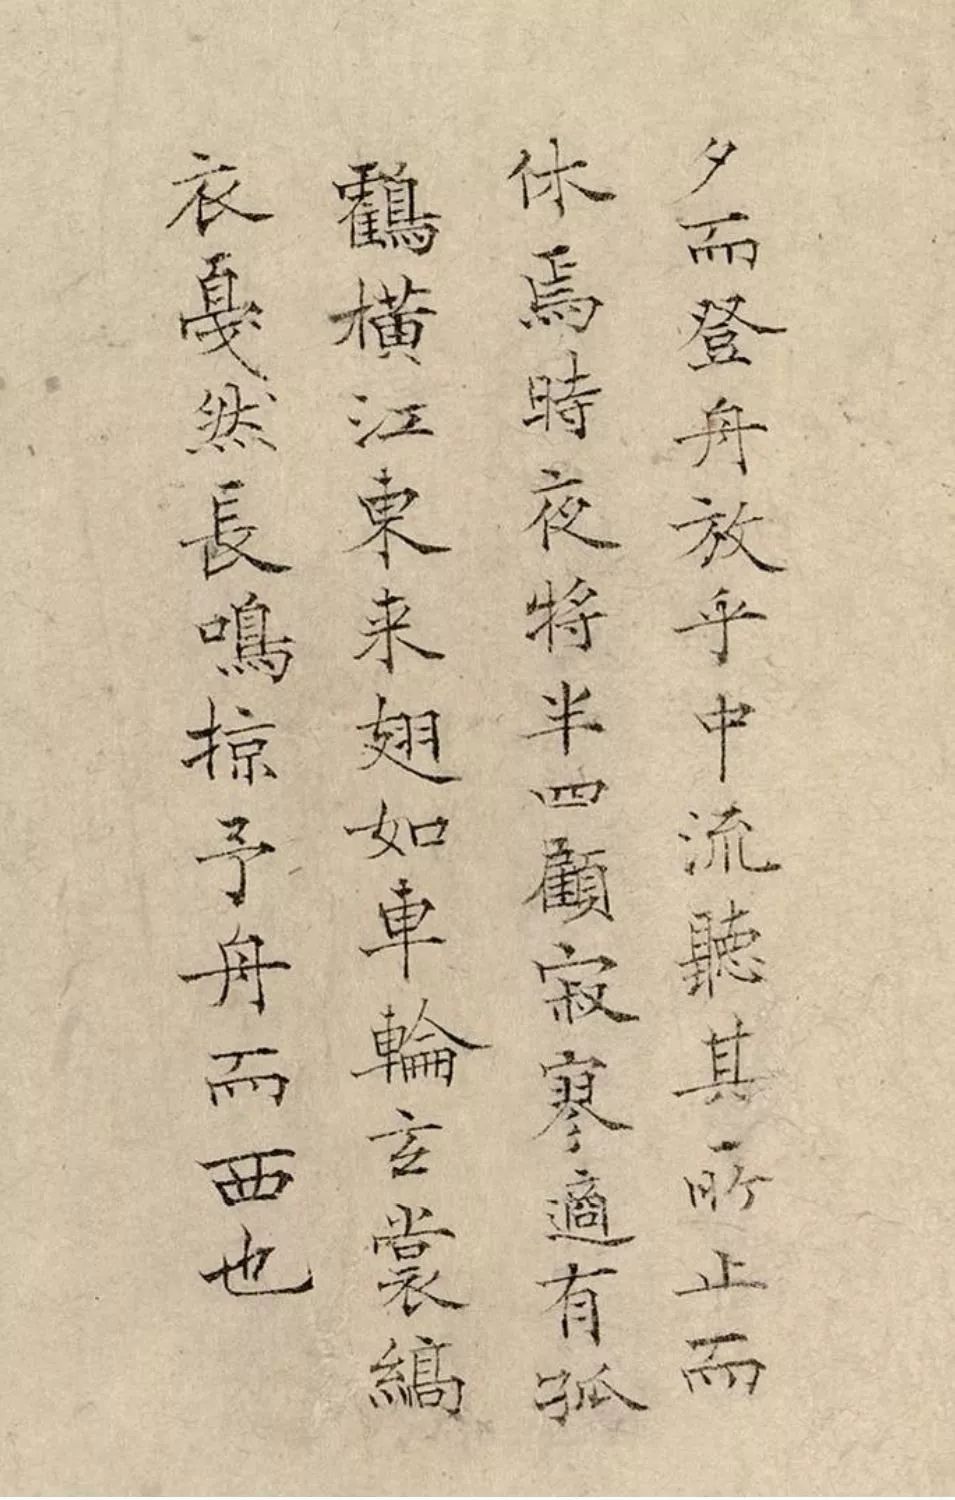 夕而登舟放乎中流聽其所止而
休焉時夜將半四顧寂寥適有孤
鶴橫江東来翅如車輪玄裳縞
衣戞然長鳴掠予舟而西也